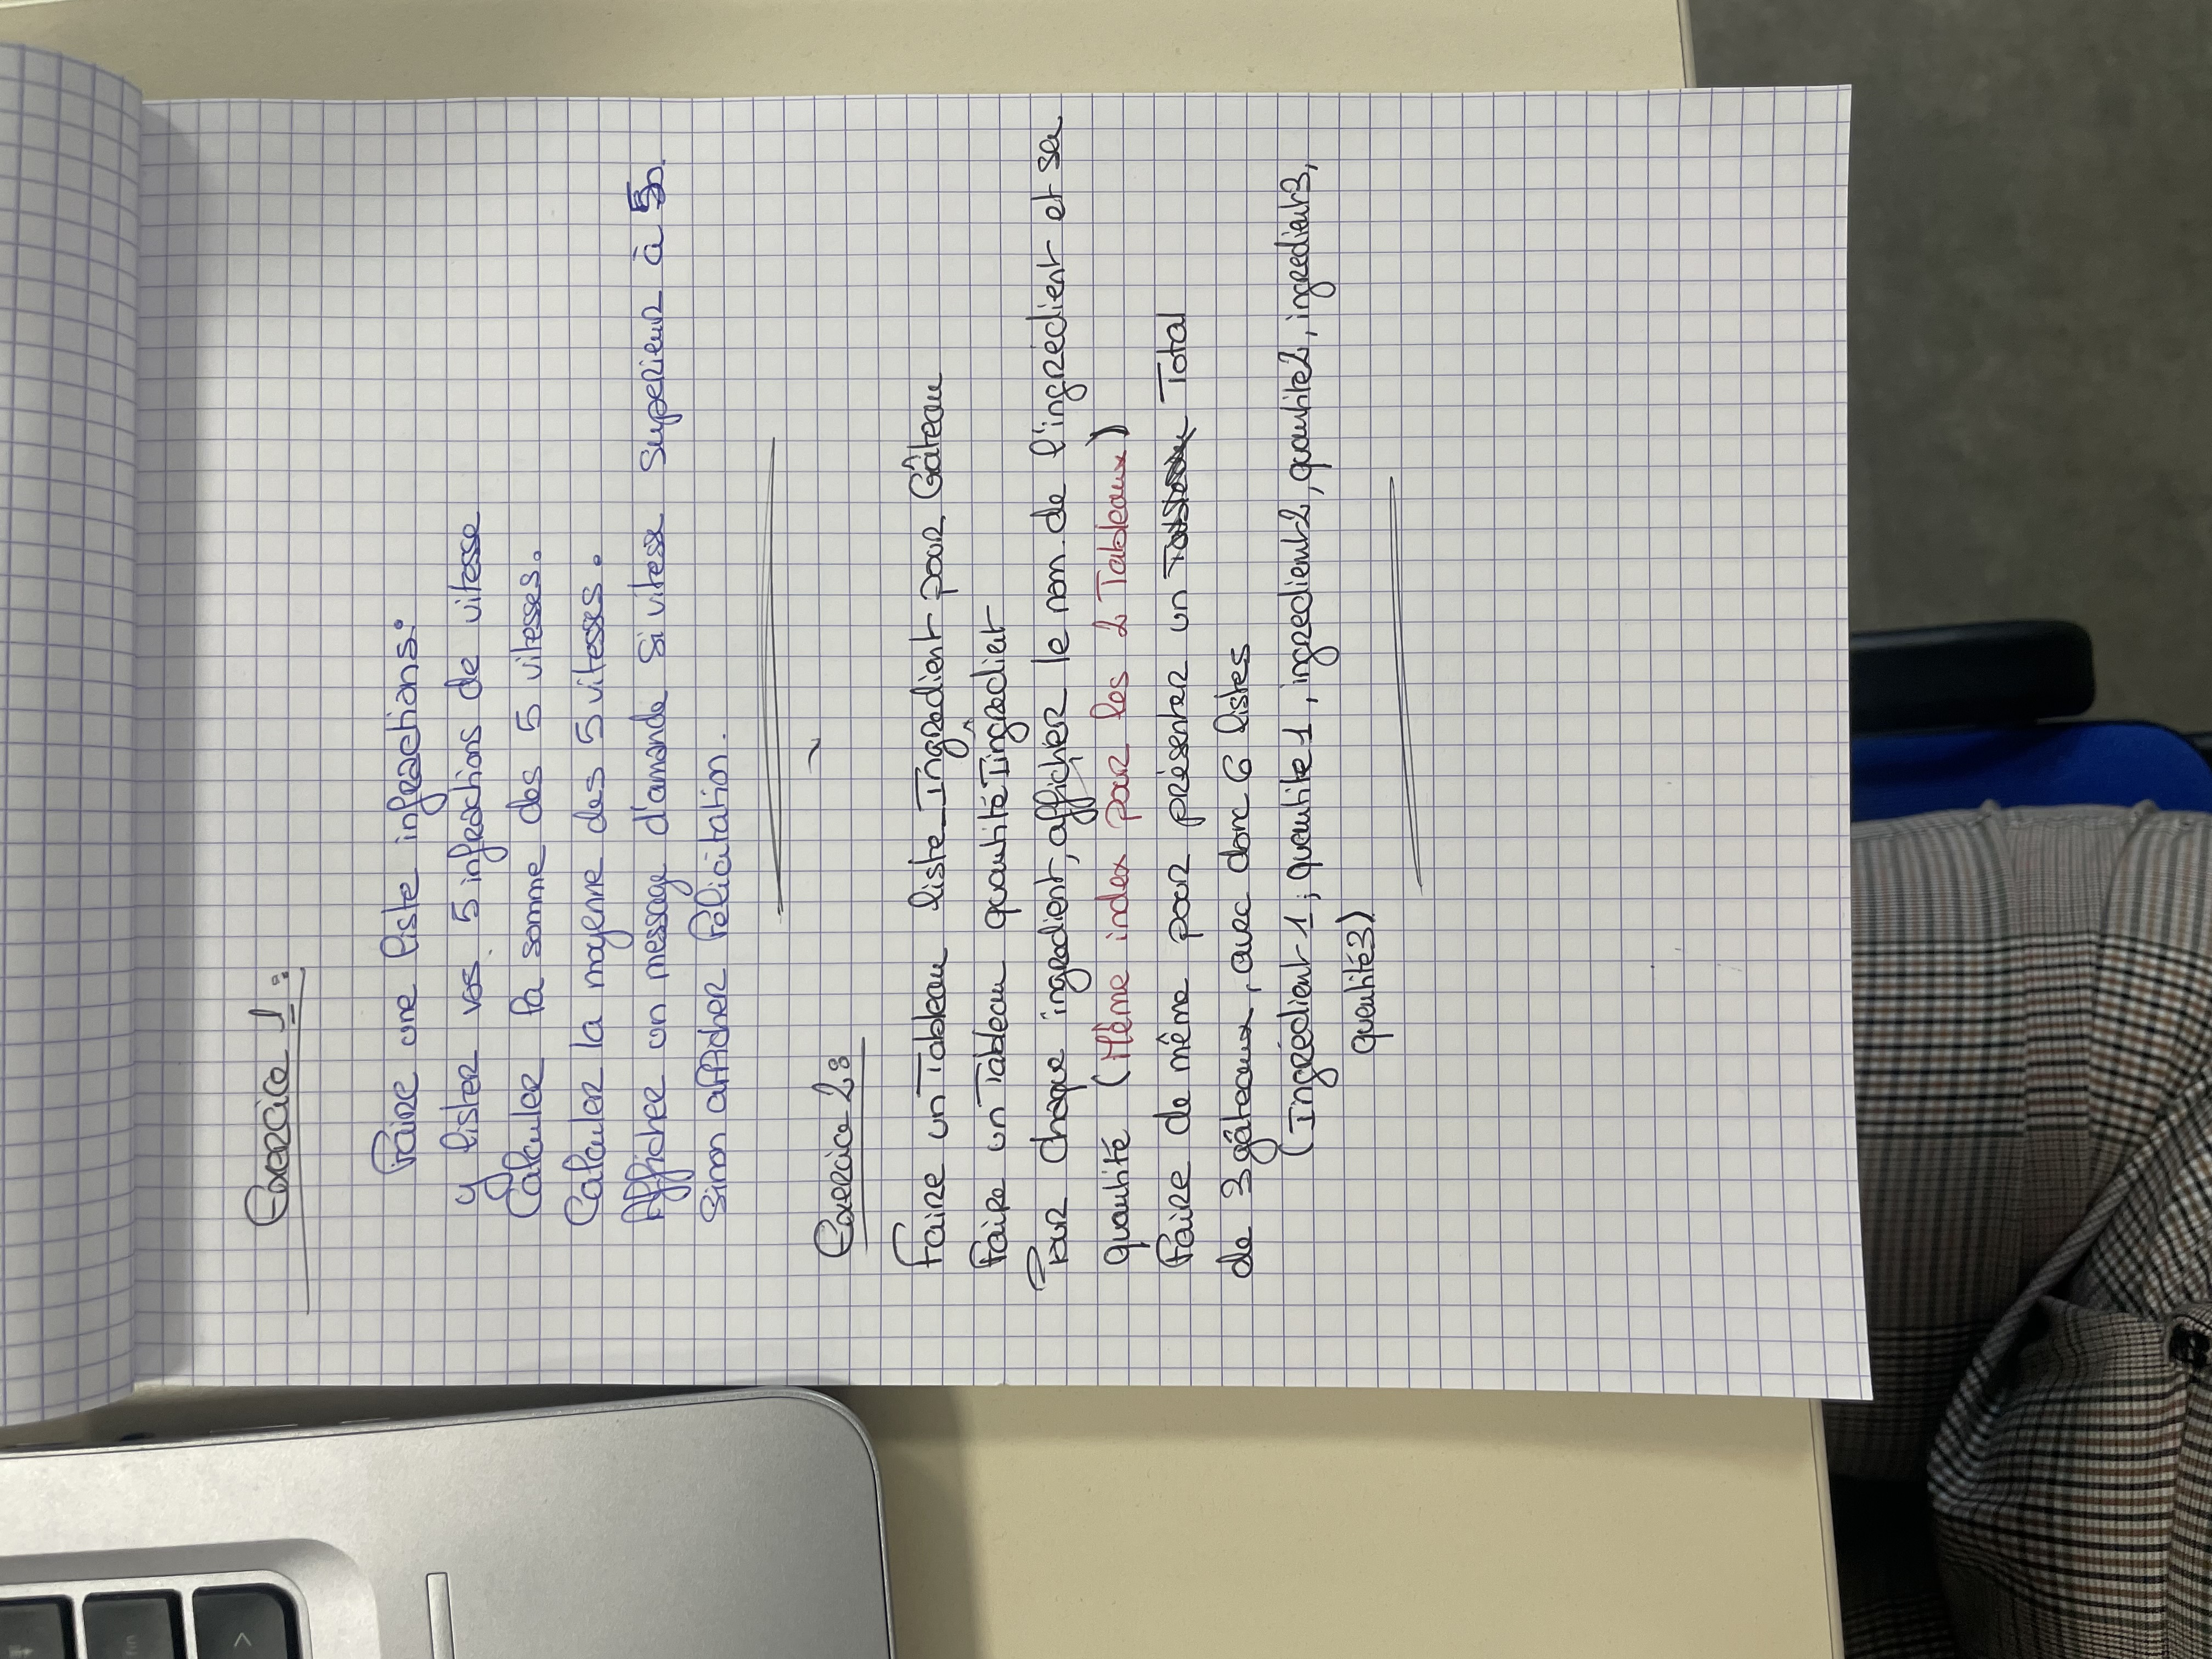 fin
>
Exercice 1 :
Faire une liste infractions:
y lister vos 5 infractions de vitesse
Calculer la somme des 5 vitesses.
Calculer la moyenne des 5 vitesses.
Afficher un message d'amande si vitesse superieur à 50.
Sinon afficher félicitation.
Exercice 2 :
Faire un Tableau liste_Ingredient pour Gâteau
Faire un Tableau quantité Iingredient
Pour chaque ingredient, afficher le nom de l'ingrédient et sa
quantité (Même index pour les 2 Tableaux)
Faire de même pour présenter un Total
de 3 gâteaux, avec donc 6 listes
(Ingrédient 1, quantite 1, ingredient2, quantite2, ingredient3,
quantité3)